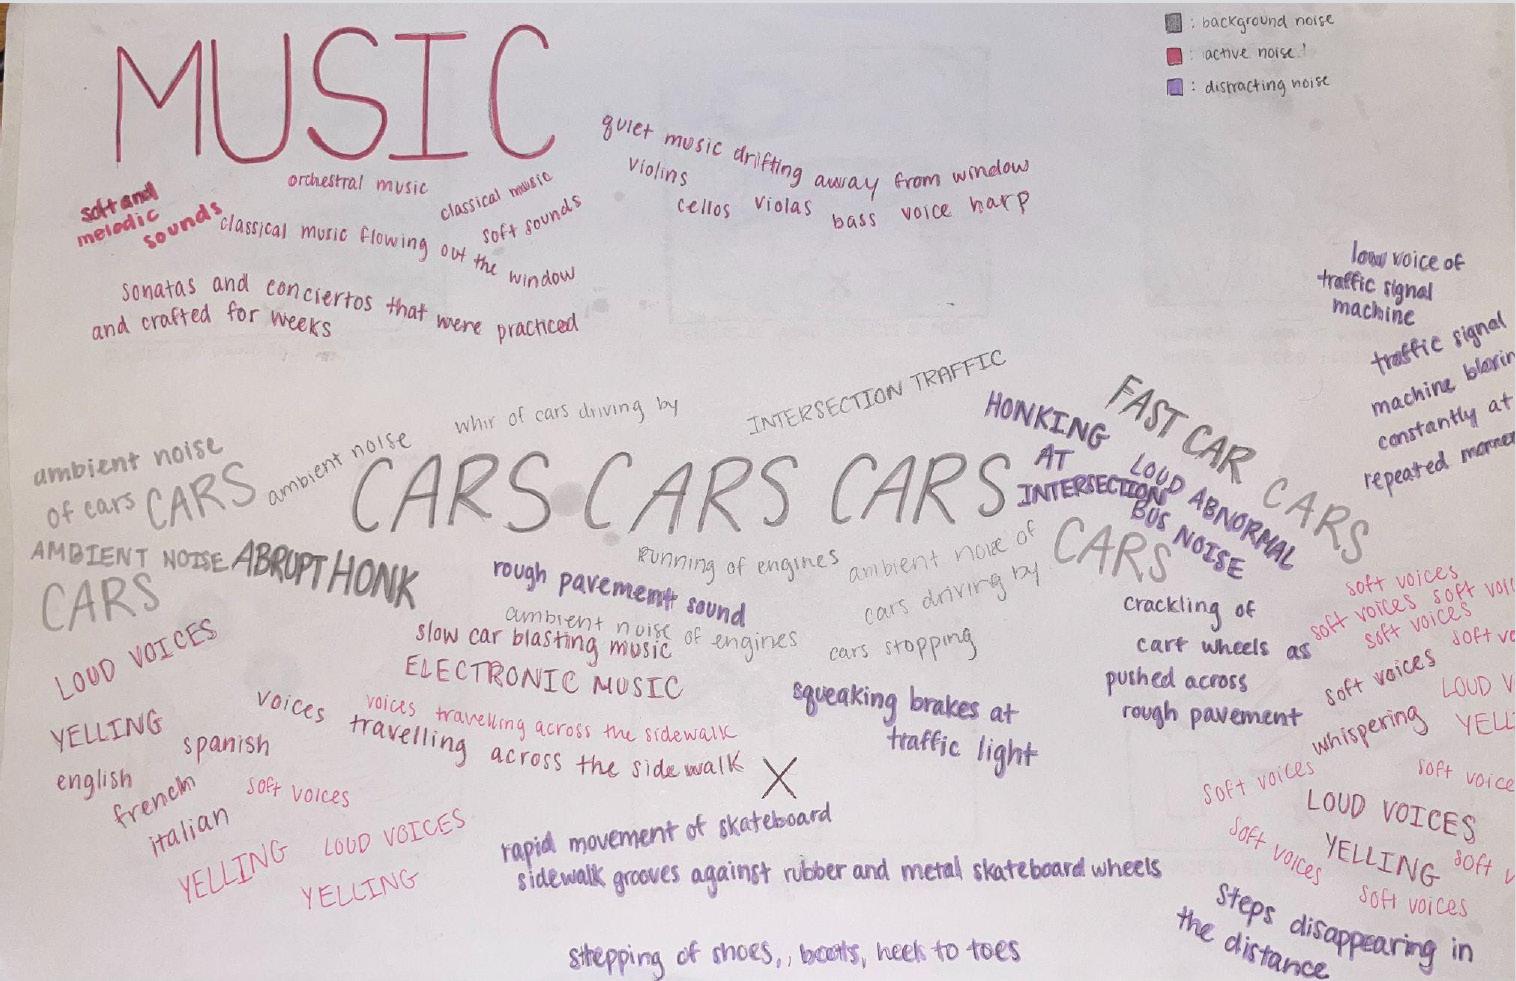 MUSIC
: background noise
: active noise!
: distracting noise
quiet music drifting away from window
violins
cellos violas bass voice harp
orchestral music
classical music
soft sounds
soft and
melodic
sounds
classical music flowing out the window
sonatas and conciertos that were practiced
and crafted for weeks
low voice of
traffic signal
machine
traffic signal
machine blarin
constantly at
repeated manner
whir of cars driving by
INTERSECTION TRAFFIC
ambient noise
of cars
CARS
ambient noise
CARS CARS CARS
HONKING
AT
INTERSECTION
FAST CAR
CARS
LOUD ABNORMAL
BUS NOISE
CARS
AMBIENT NOISE
ABRUPT HONK
CARS
running of engines
ambient noise of
cars driving by
cars stopping
rough pavement sound
ambient noise of engines
slow car blasting music
ELECTRONIC MUSIC
crackling of
cart wheels as
pushed across
rough pavement
soft voices
soft voices soft voic
soft voices
soft vo
soft voices
LOUD V
whispering
YELL
LOUD VOICES
YELLING
spanish
english
french
italian
soft voices
YELLING
LOUD VOICES
YELLING
voices travelling across the sidewalk
voices travelling across the sidewalk
X
squeaking brakes at
traffic light
soft voices
soft voice
LOUD VOICES
soft voices
YELLING
soft v
soft voices
rapid movement of skateboard
sidewalk grooves against rubber and metal skateboard wheels
stepping of shoes,, boots, heels to toes
steps disappearing in
the distance